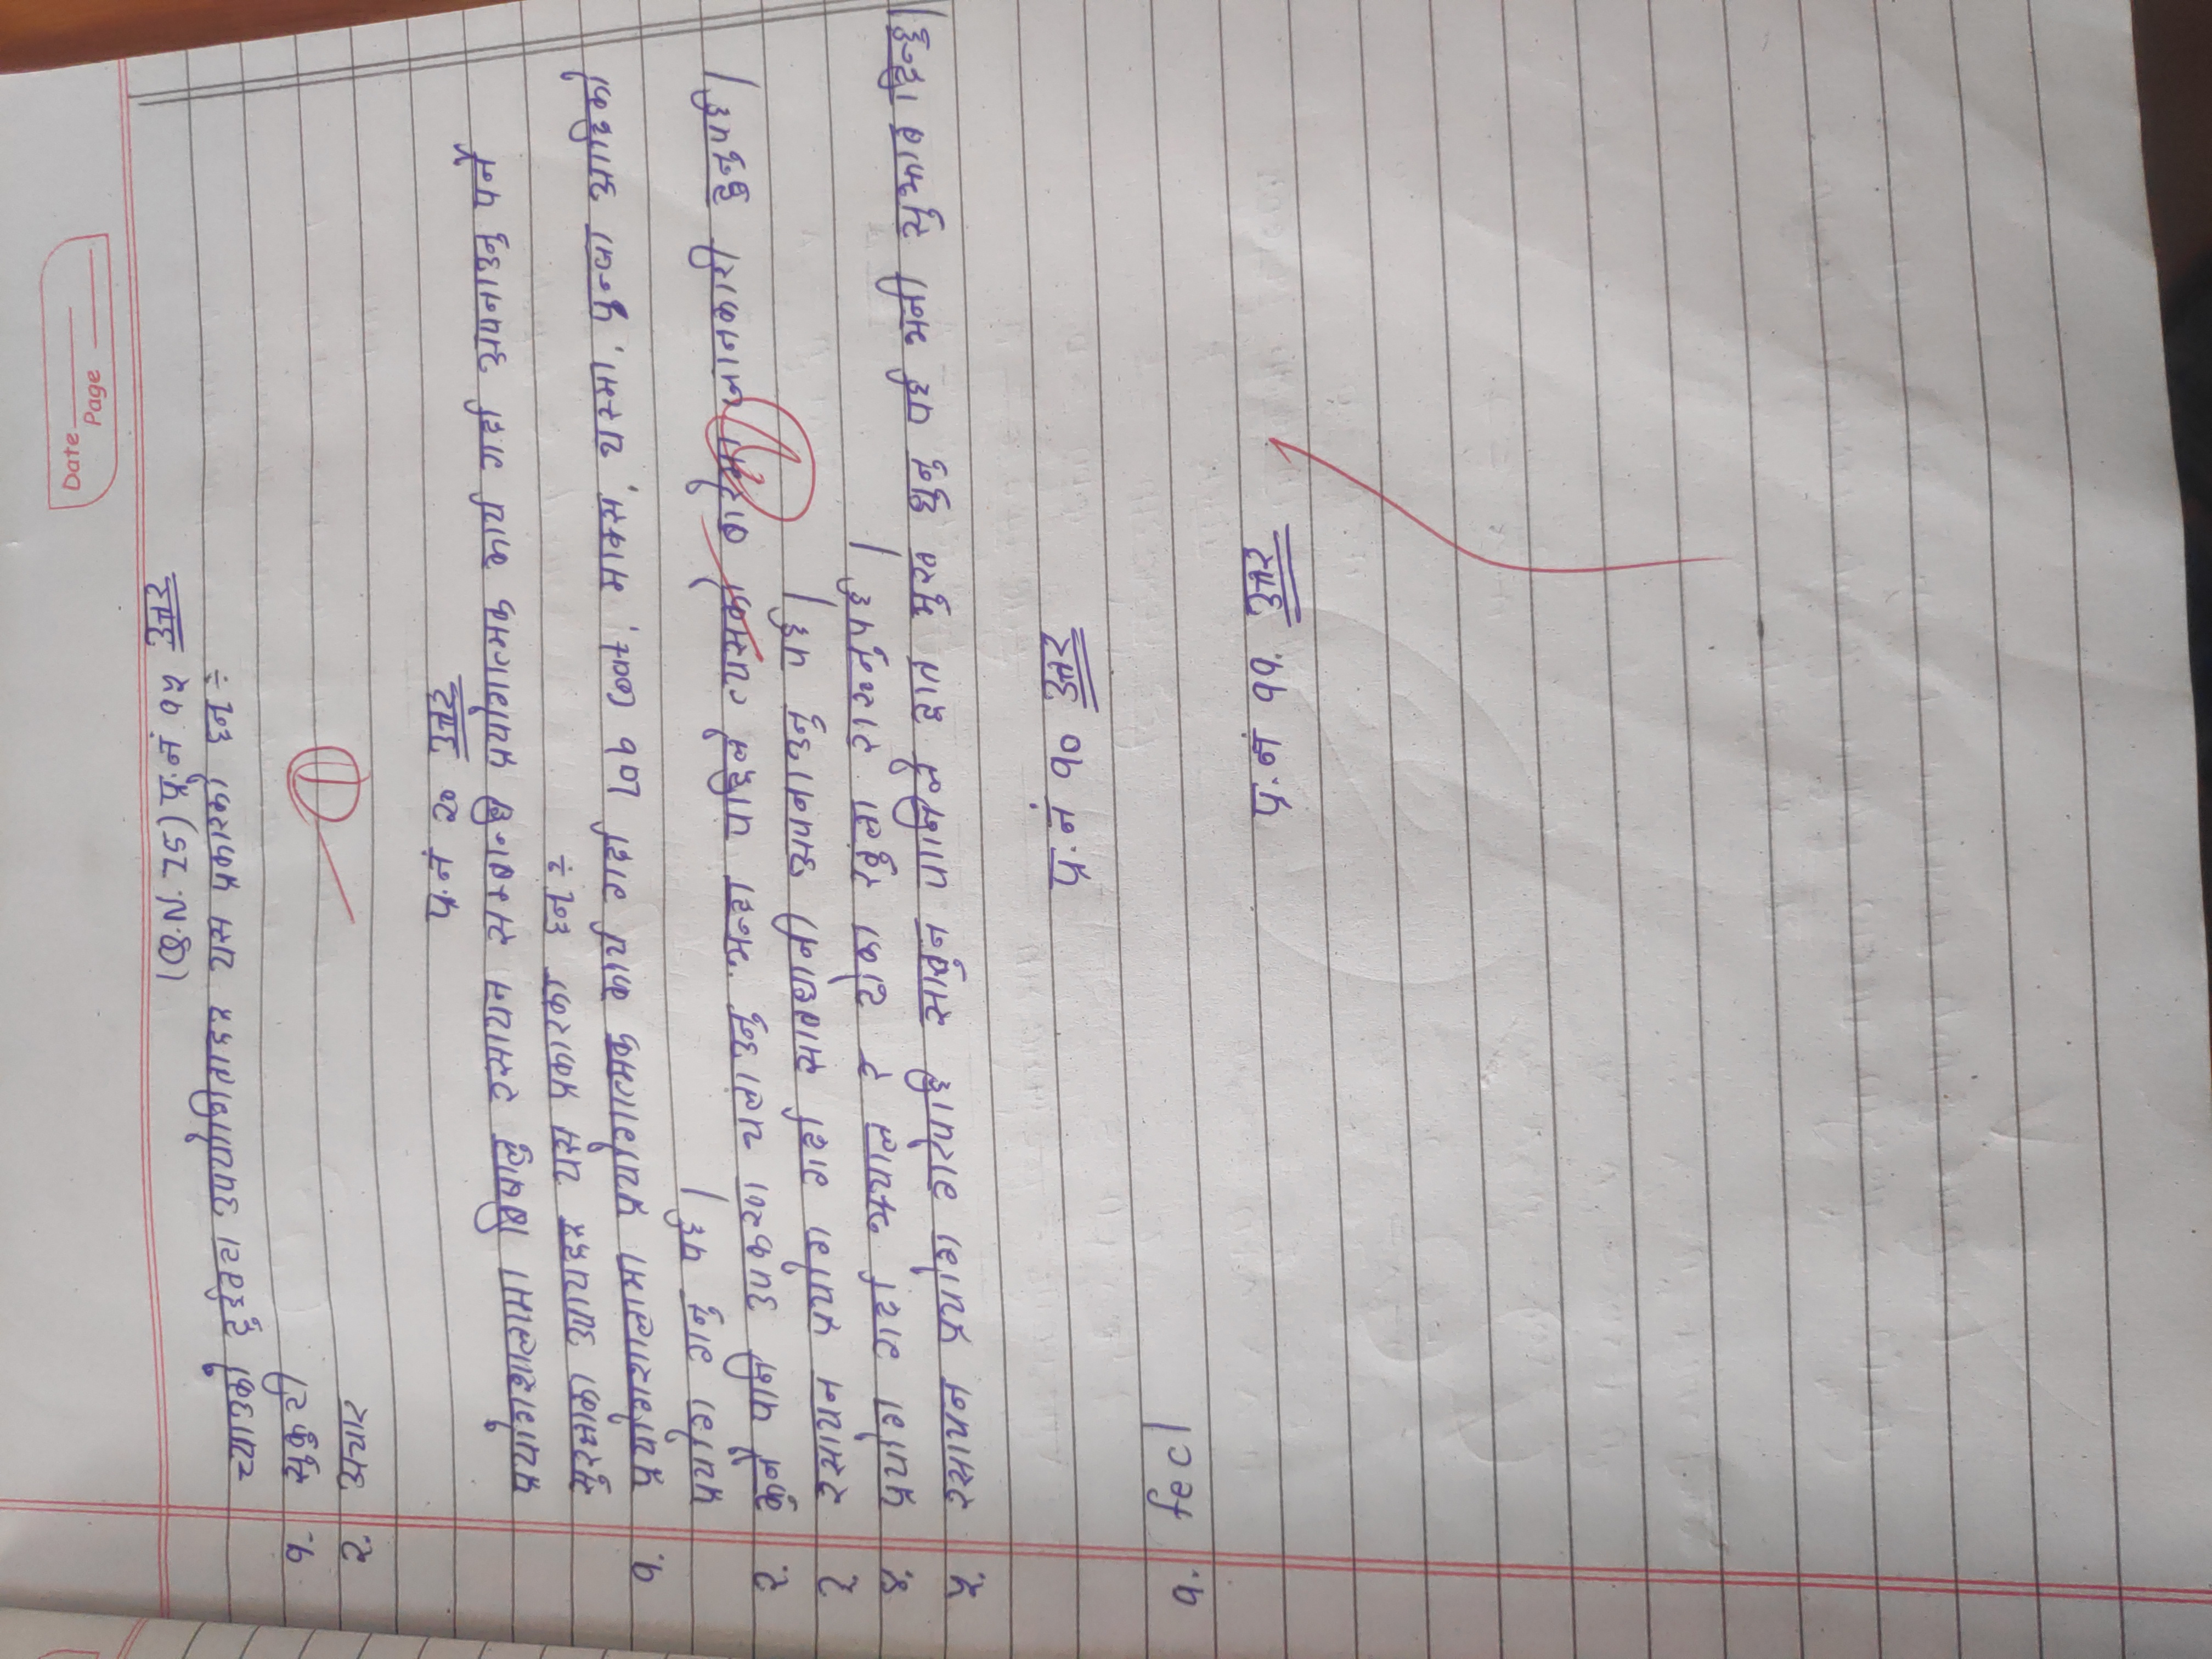 Date
Page
(Q.N. 15) प्र.नं १५ उत्तर
च्याउको दुईवटा उपयोगिताहरु यस प्रकारको छन् ÷
१. सुकुटी
२. अचार
प्र.नं २० उत्तर
प्रयोगशालामा बिषालु रसायन सम्बान्धि प्रयोगात्मक कार्य गर्दा अपनाउनु पर्ने
सुरक्षाका उपायहरु यस प्रकारका छन् ÷
१. प्रयोगशालामा प्रयोगात्मक कार्य गर्दा Lab Coat, माक्स, चस्मा, पुन्जा आदिको
प्रयोग गनु पर्छ।
२. कुनै पानि उपकरण चलाउनु भन्दा पाहिले त्यसको बारेमा जानकारी हुनुपर्छ।
३ रसायन प्रयोग गर्दा सावधानी अपनाउनु पर्छ।
४. प्रयोग गर्दा झ्याल र ढोका खुला राख्नुपर्छ।
५. रसायन प्रयोग गरेपाछि साबुन पानिले हात मुख धुनु पर्छ भनी सुझाव दिन्छु।
प्र.नं १० उत्तर
१. fecl
प्र.नं ११. उत्तर